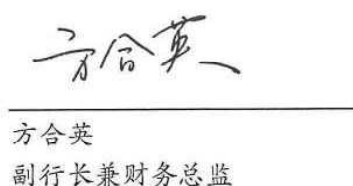 方合英
方合英
副行长兼财务总监